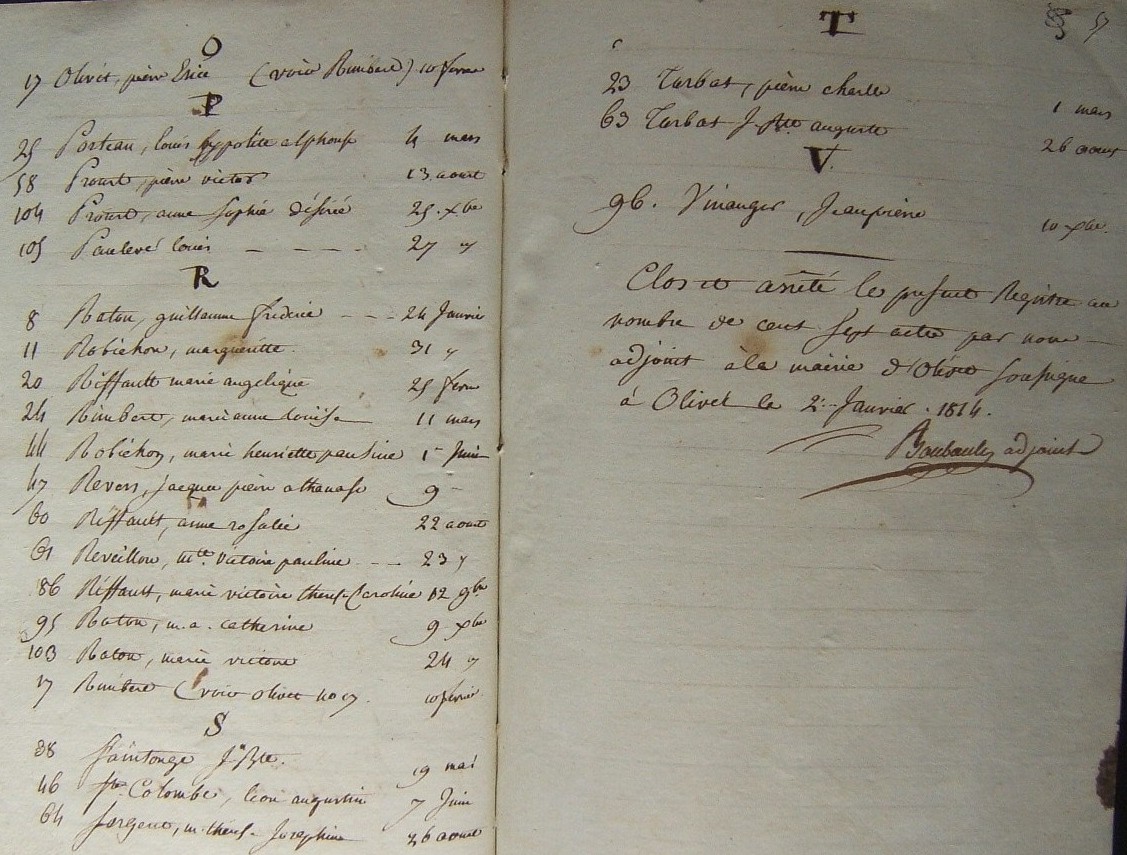 O
17 Olivet, pierre (voir Rimbert) 10 fevrier
P
25 Posteau, louis hyppolitte alphonse 4 mars
58 Proust, pierre victor 13 aout
104 Proust, anne Sophie désirée 25 xbre
105 Paulevé louis 27 "
R
8 Raton, guillaume frederic 24 Janvier
11 Robichon, margueritte. 31 "
20 Riffault marie angelique 25 fevrier
24 Rimbert, marie anne louise 11 mars
44 Robichon, marie henriette pauline 1er Juin
47 Revers, jacques pierre athanase 9
60 Riffault, anne rosalie 22 aout
61 Reveillon, victoire pauline 23 "
86 Riffault, marie victoire therese Caroline 12 9bre
95 Raton, m. a. catherine 9 xbre
103 Raton, marie victoire 24 "
17 Rimbert (voir olivet no 17. 10 fevrier
S
38 Saintonge J. Bte. 19 mai
46 Ste Colombe, leon augustin 7 Juin
64 Sergent, m. therese Josephine 26 aout
57
T
23 Turbat, pierre charles 1 mars
63 Turbat J. Bte auguste 26 aout
V.
96. Vinauger, Jean pierre 10 xbre.
Clos et arrêté le present Registre au
nombre de cent sept actes par nous
adjoint à la mairie d'Olivet soussigné
à Olivet le 2. Janvier. 1814.
adjoint